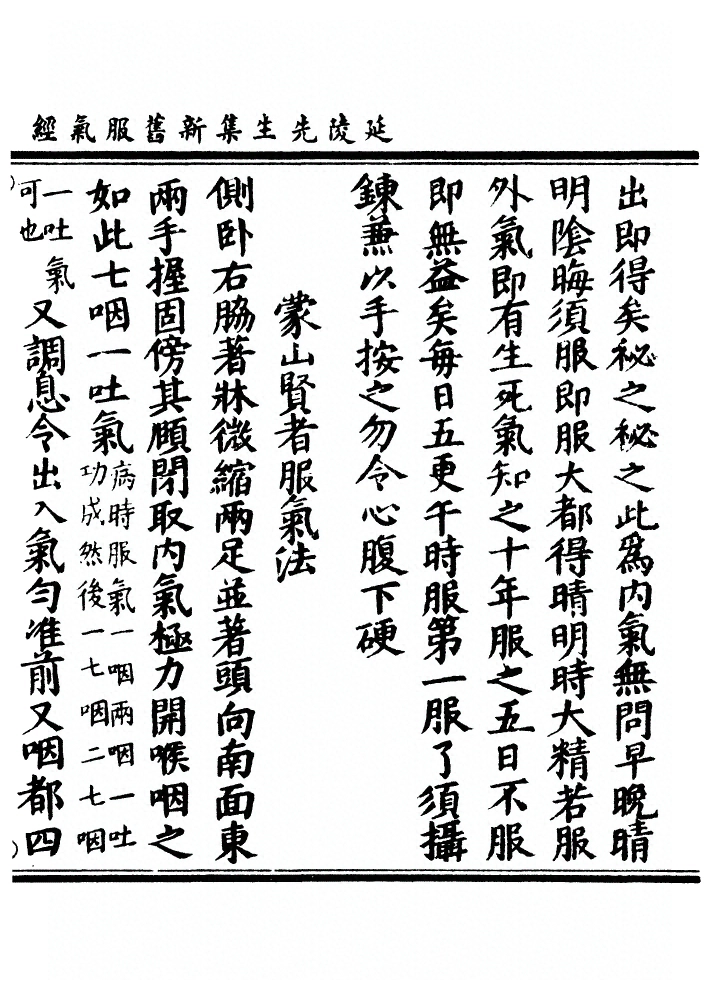 延陵先生集新舊服氣經
出即得矣秘之秘之此為内氣無問早晚晴
明陰晦須服即服大都得晴明時大精若服
外氣即有生死氣知之十年服之五日不服
即無益矣每日五更午時服第一服了須攝
鍊兼以手按之勿令心腹下硬
蒙山賢者服氣法
側卧右脇著牀微縮兩足並著頭向南面東
兩手握固傍其頤閉取内氣極力開喉咽之
如此七咽一吐氣病時服氣一咽兩咽一吐功成然後一七咽二七咽
一吐氣可也又調息令出入氣勻准前又咽都四